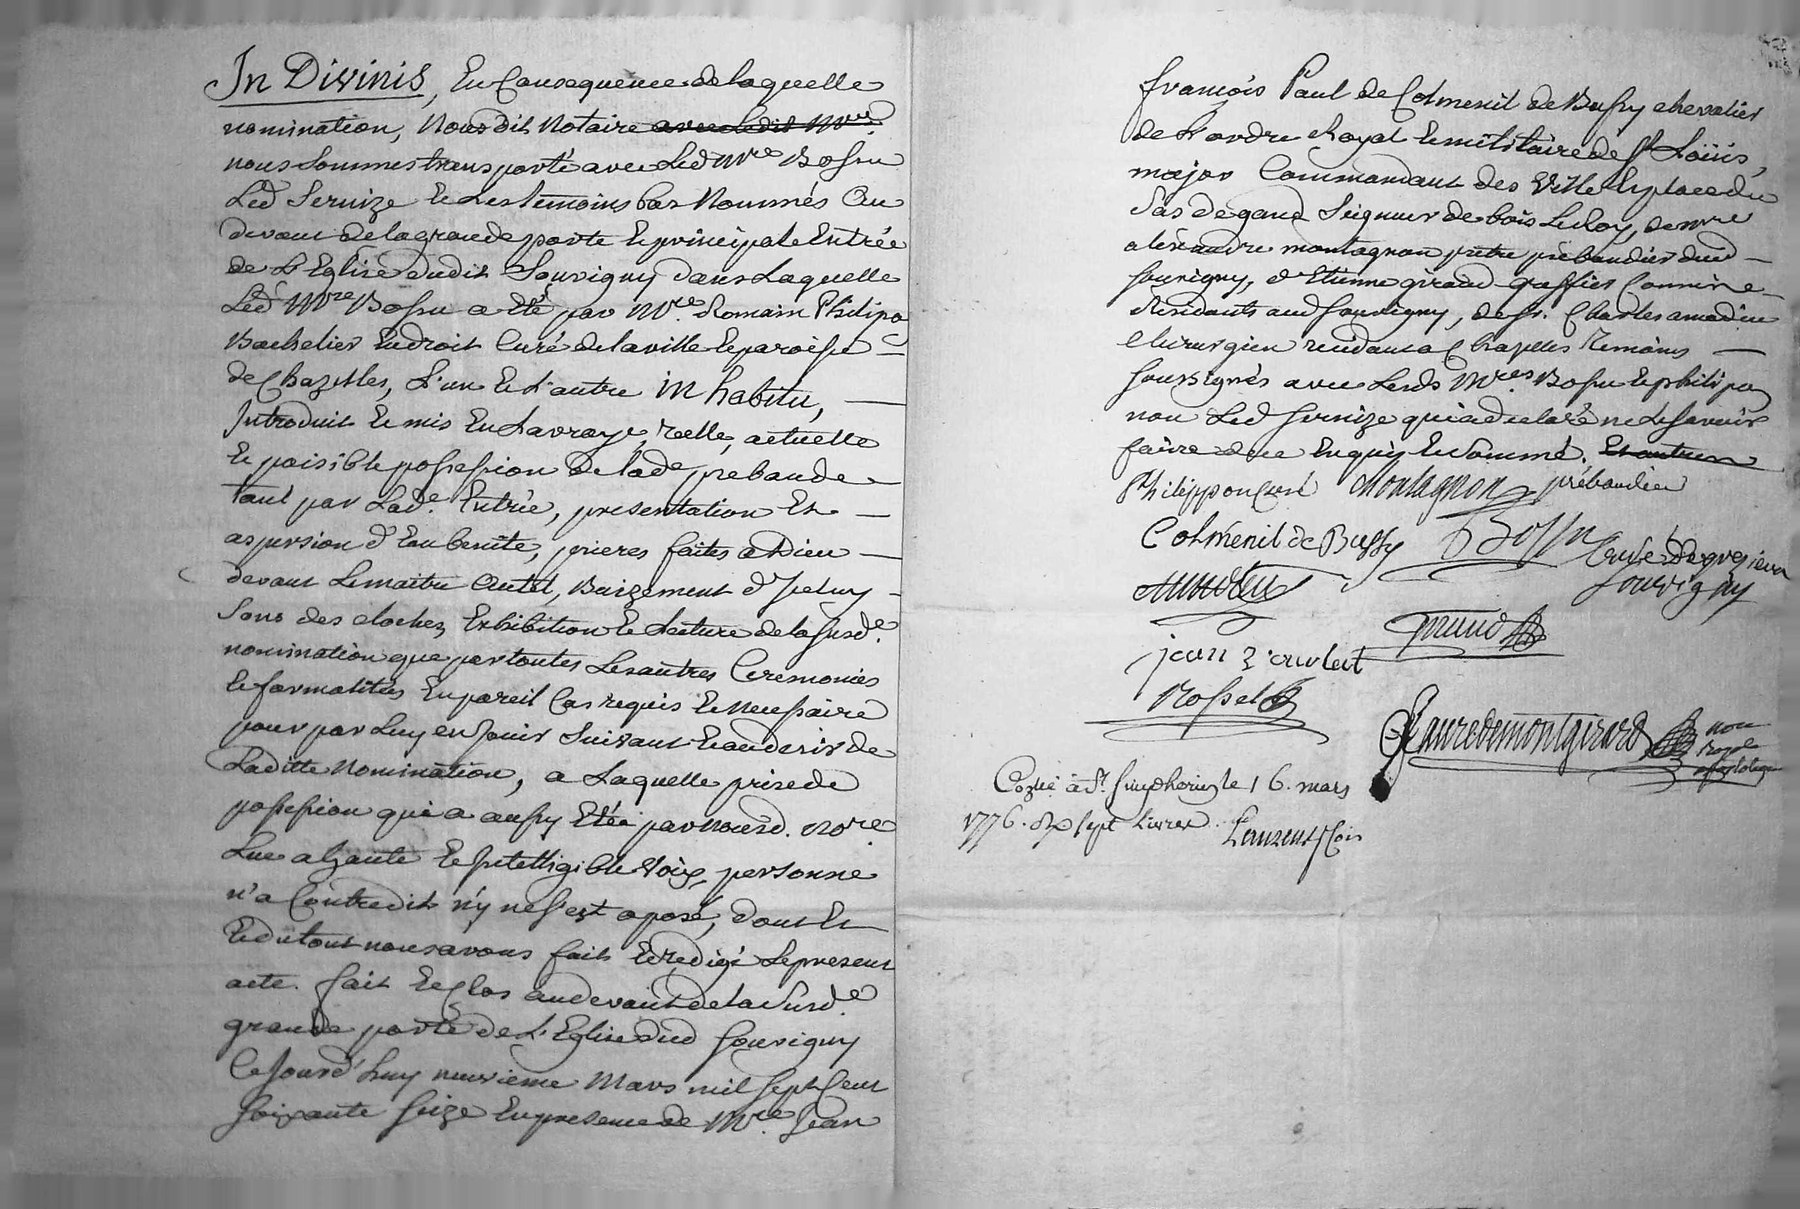 In Divinis, En Consequence de laquelle
nomination, Nous dit Notaire avec ledit Mre
nous sommes transporté avec Led Mre Bossu
Led Sernize Et Les temoins bas Nommés Au
devant de la grande porte Et principale Entrée
de L'Eglise dudit Souvigny dans Laquelle
Led Mre Bossu a Eté par Mre Romain Philipon
Bachelier En droit Curé de la ville Et paroisse —
de Chazelles, L'un Et L'autre in habitu, —
Introduit Et mis En La vraye, réelle, actuelle
Et paisible possession de lade prebande —
tant par Lade Entrée, presentation Et —
aspersion d'Eau benite, prieres faites a Dieu —
devant Le maitre Autel, Baizement d'Iceluy —
Sons des cloches, Exhibition Et Lecture de la susde
nomination que par toutes Les autres Ceremonies
Et formalités En pareil Cas requis Et necessaire
pour par Luy en Jouir Suivant Et au desir de
Laditte Nomination, a Laquelle prise de
possession qui a aussy Etée par nousd. Nore
Lue a haute Et Intelligible voix, personne
n'a Contredit n'y ne s'est oposé, dont Et
Et du tout nous avons fait Et redigé Le present
acte. fait Et Clos au devant de la Susde
grande porte de L'Eglise dud Souvigny
Ce Jourd'huy neuvieme Mars mil sept Cent
soixante seize En presence de Mre Jean
françois Paul de Colmenil de Bussy chevalier
de L'ordre Royal Et militaire de St Loüis,
major Commandant des Ville Et place du
Sas de gand Seigneur de bois Le Roy, de Mre
alexandre montagnon prêtre prébandier dud —
Souvigny, d'Etienne giraud greffier Commis —
Residants aud Souvigny, de Sr. Charles amadieu
Chirurgien residant a Chazelles Temoins —
soussignés avec Lesds Mres Bossu Et philipon
non Led Sernize qui a declaré ne Le savoir
faire de ce Enquis Et Sommé. Et autres
Philippon Curé Montagnon prébandier
Colménil de Bussy Bossu Curé de
Souvigny
Amadieu
Giraud
jean
Rosselet
Faure de montgirard non
royal
Copié à St. Simphorien le 16. mars
1776. Rx sept Livres.
Laurenson